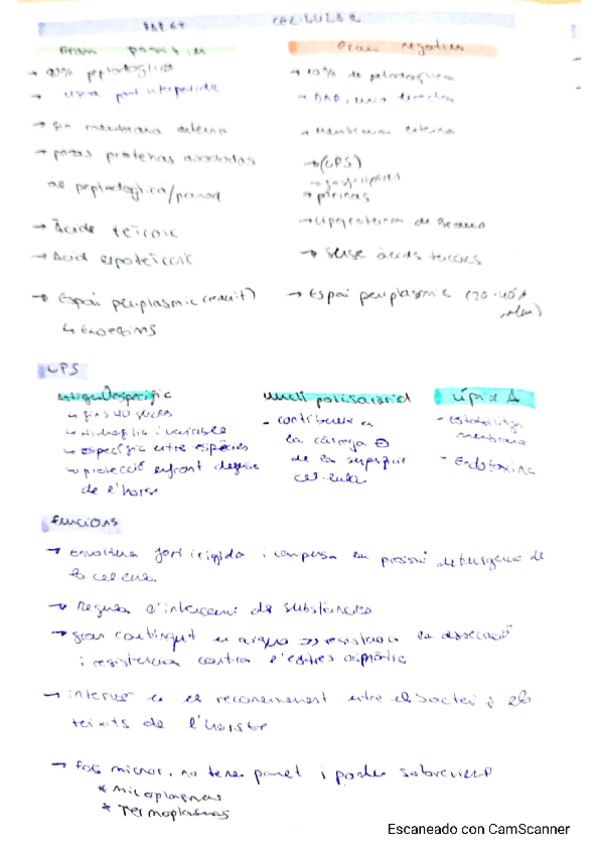 PARET CEL·LULAR
Gram positiu
→ 90% peptidoglicà
→ pont interpeptídic
→ sin membrana externa
→ poques proteïnes associades
al peptidoglicà/paret
→ àcids teicoic
→ àcid lipoteicoic
→ Espai periplasmic (reduit)
↳ Exoenzims
Gram negatiu
→ 10% de peptidoglicà
→ DAP, unió directa
→ Membrana externa
→ (LPS)
→ fosfolípids
→ porines
→ Lipoproteïna de Braun
→ sense àcids teicoics
→ Espai periplasmic (20-40%
volum)
LPS
antigen O específic
↳ fins 40 sucres
↳ hidrofílic i variable
↳ específic entre espècies
↳ protecció enfront defensa
de l'hoste
nucli polisacàrid
- contribueix en
la càrrega ⊖
de la superfície
cel·lular
lípid A
- estabilitza
membrana
- Endotoxina
Funcions
→ Envoltura fort i rígida i compensa la pressió de turgència de
la cèl·lula
→ Regula l'intercanvi de substàncies
→ gran contingut en aigua => resistència la dessecació
i resistència contra l'estrés osmòtic
→ intervé en el reconeixement entre el bacteri i els
teixits de l'hoste
→ microo. no tenen paret i poden sobreviure
* Micoplasmas
* Termoplasmas
Escaneado con CamScanner